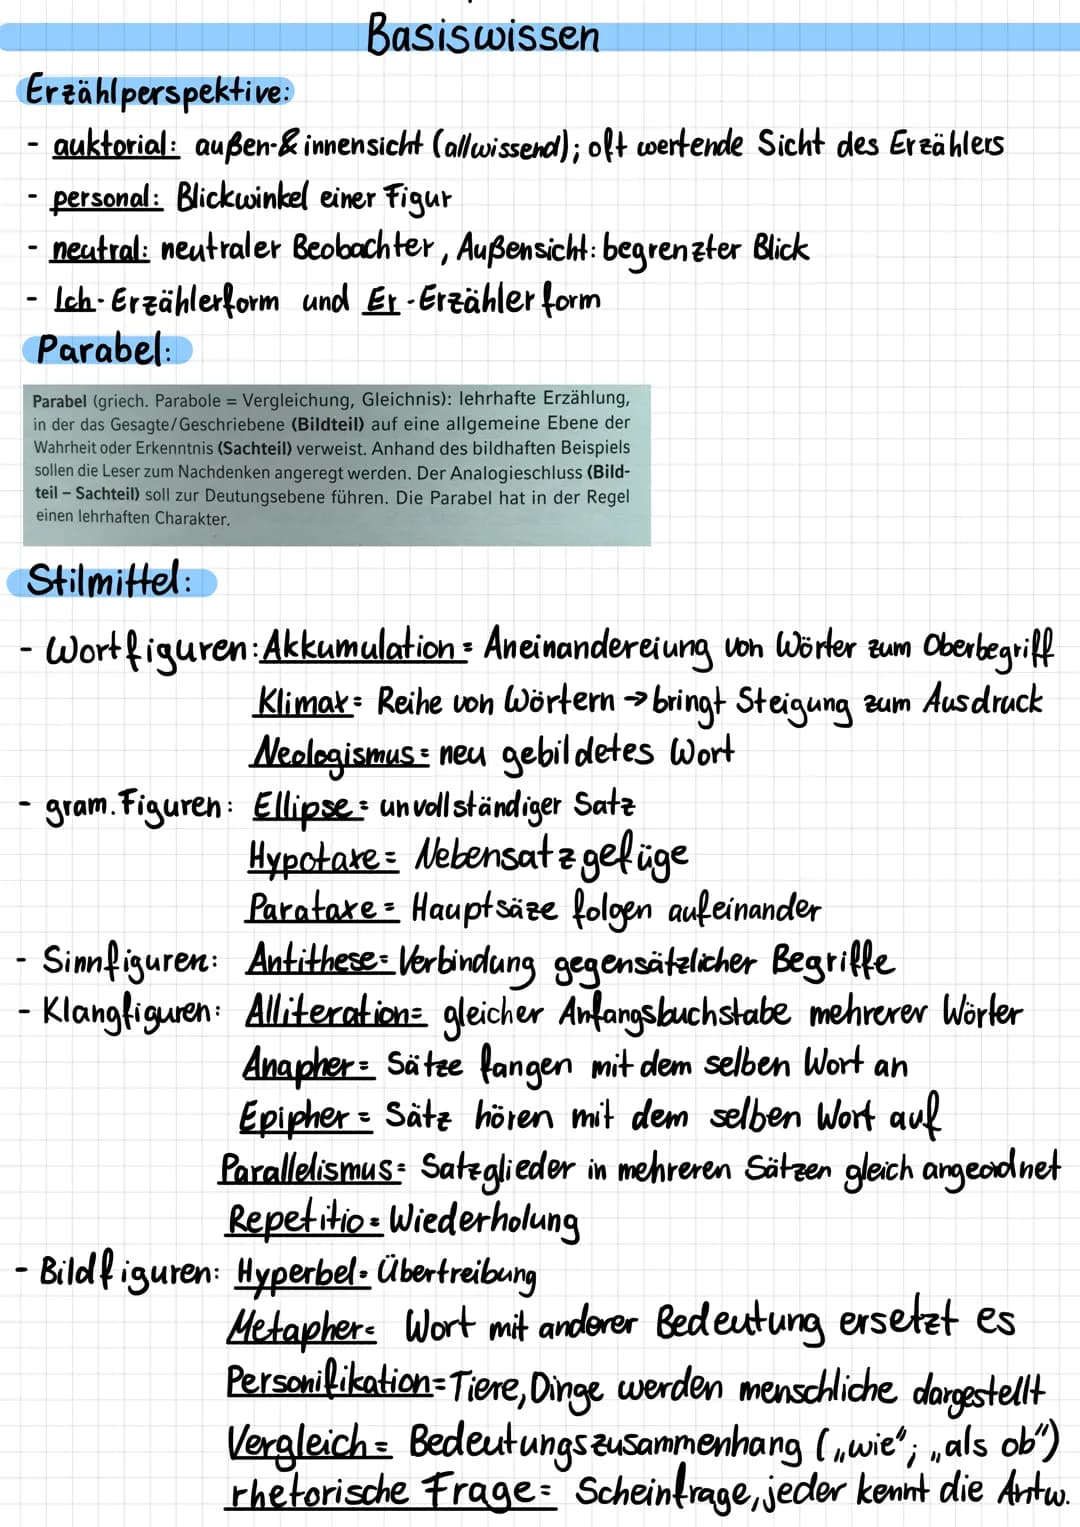 Basiswissen
Erzählperspektive:
- auktorial: außen-& innensicht (allwissend); oft wertende Sicht des Erzählers
- personal: Blickwinkel einer Figur
- neutral: neutraler Beobachter, Außensicht: begrenzter Blick
- Ich-Erzählerform und Er-Erzählerform
Parabel:
Parabel (griech. Parabole = Vergleichung, Gleichnis): lehrhafte Erzählung,
in der das Gesagte/Geschriebene (Bildteil) auf eine allgemeine Ebene der
Wahrheit oder Erkenntnis (Sachteil) verweist. Anhand des bildhaften Beispiels
sollen die Leser zum Nachdenken angeregt werden. Der Analogieschluss (Bild-
teil – Sachteil) soll zur Deutungsebene führen. Die Parabel hat in der Regel
einen lehrhaften Charakter.
Stilmittel:
- Wortfiguren: Akkumulation = Aneinandereiung von Wörter zum Oberbegriff
Klimax = Reihe von Wörtern → bringt Steigung zum Ausdruck
Neologismus = neu gebildetes Wort
- gram. Figuren: Ellipse = unvollständiger Satz
Hypotaxe = Nebensatzgefüge
Parataxe = Hauptsäze folgen aufeinander
- Sinnfiguren: Antithese = Verbindung gegensätzlicher Begriffe
- Klangfiguren: Alliteration = gleicher Anfangsbuchstabe mehrerer Wörter
Anapher = Sätze fangen mit dem selben Wort an
Epipher = Sätz hören mit dem selben Wort auf
Parallelismus = Satzglieder in mehreren Sätzen gleich angeordnet
Repetitio = Wiederholung
- Bildfiguren: Hyperbel = Übertreibung
Metapher = Wort mit anderer Bedeutung ersetzt es
Personifikation = Tiere, Dinge werden menschliche dargestellt
Vergleich = Bedeutungszusammenhang („wie"; „als ob")
rhetorische Frage = Scheinfrage, jeder kennt die Antw.